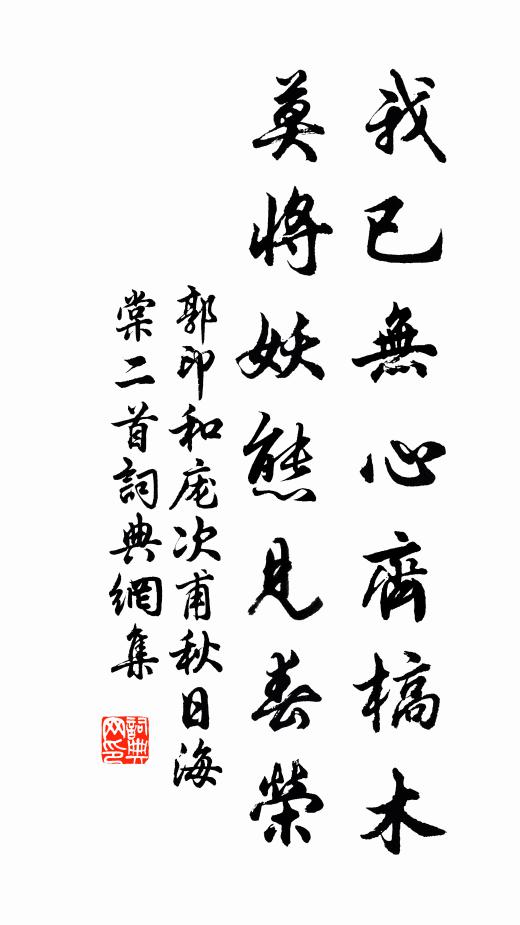 我已無心齊槁木
莫將妖態見春榮
郭印和庞次甫秋日海
棠二首詞典網集
詞典
网印